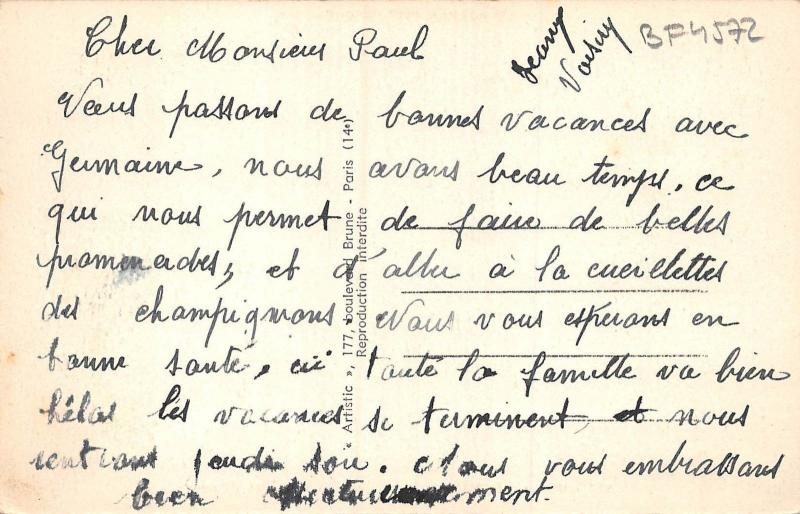 Cher Monsieur Paul
BF4572
Nous passons de bonnes vacances avec
Germaine, nous avons beau temps, ce
qui nous permet de faire de belles
promenades, et d'aller à la cueillettes
des champignons Nous vous espérons en
bonne santé, ici toute la famille va bien
hélas les vacances se terminent, et nous
rentrons jeudi soir. Nous vous embrassons
bien ment.
« Artistic », 177, boulevard Brune - Paris (14e)
Reproduction Interdite